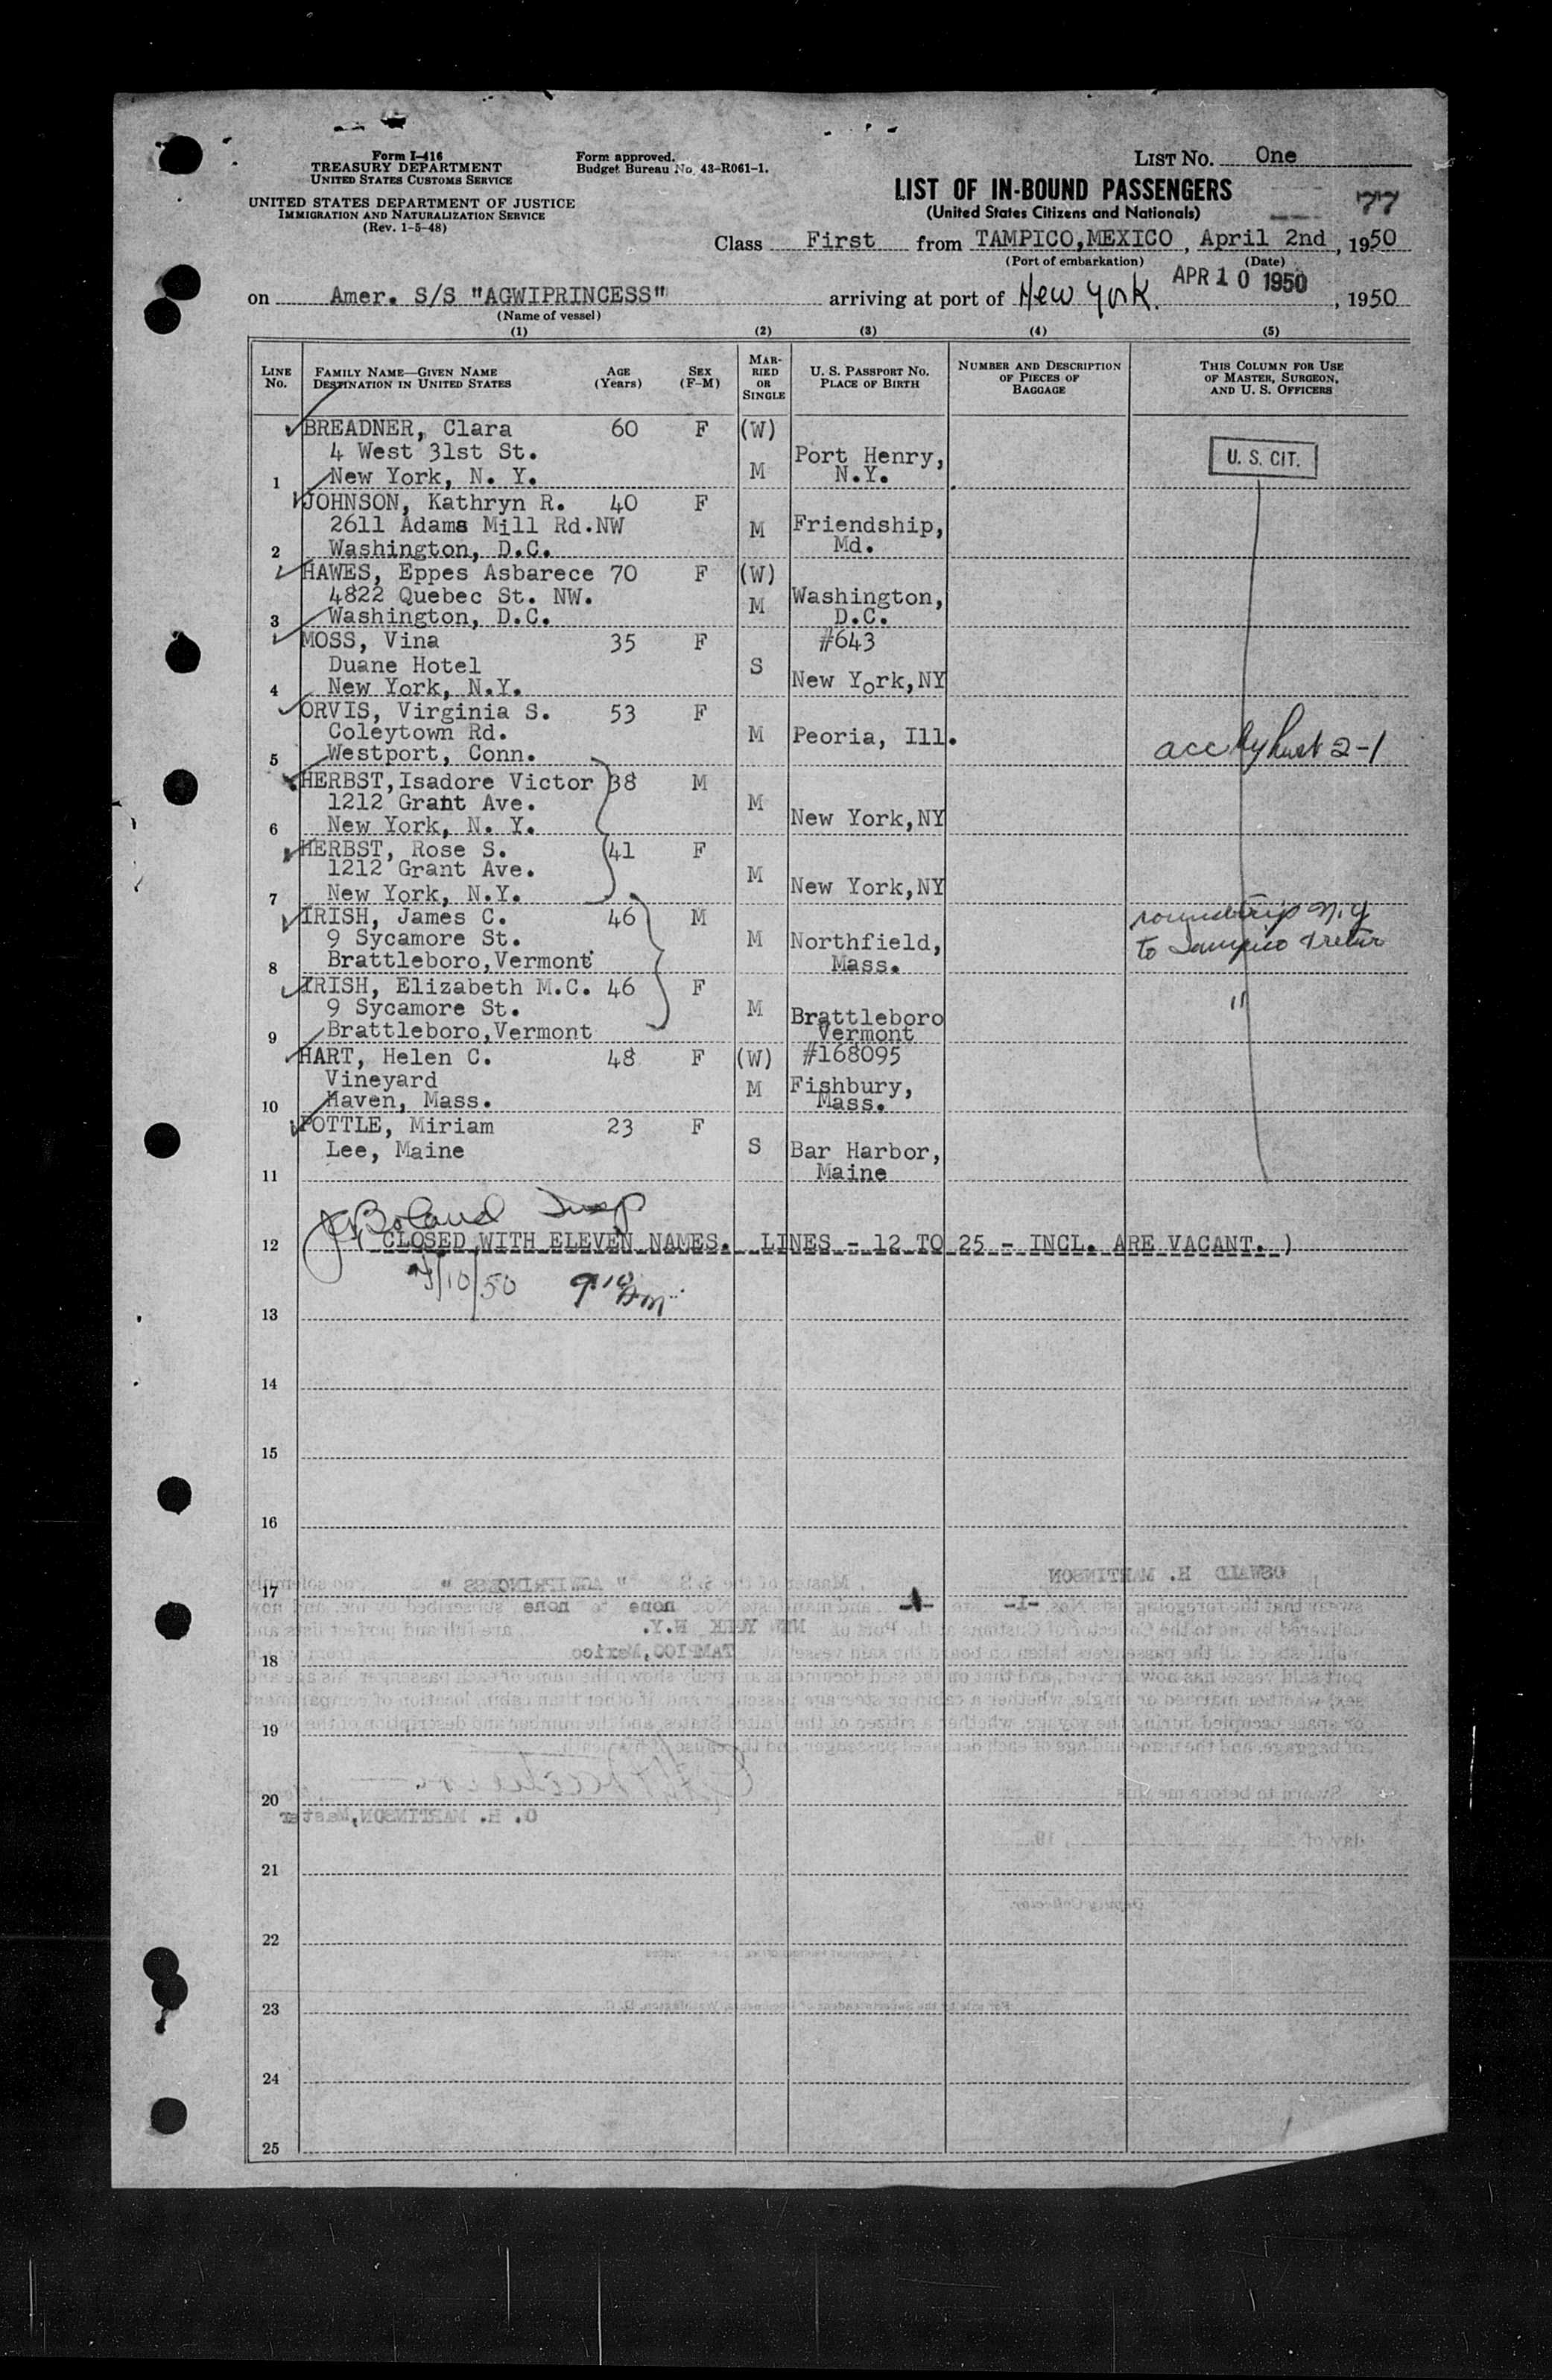 Form I-416
TREASURY DEPARTMENT
UNITED STATES CUSTOMS SERVICE
UNITED STATES DEPARTMENT OF JUSTICE
IMMIGRATION AND NATURALIZATION SERVICE
(Rev. 1-5-48)
Form approved.
Budget Bureau No. 43-R061-1.
LIST NO. One
LIST OF IN-BOUND PASSENGERS
(United States Citizens and Nationals)
77
Class First from TAMPICO,MEXICO, April 2nd, 1950
(Port of embarkation) (Date)
on Amer. S/S "AGWIPRINCESS" arriving at port of New York. APR 10 1950, 1950
(Name of vessel)
(1) (2) (3) (4) (5)
LINE No.
FAMILY NAME—GIVEN NAME
DESTINATION IN UNITED STATES
AGE (Years)
SEX (F-M)
MARRIED OR SINGLE
U. S. PASSPORT NO.
PLACE OF BIRTH
NUMBER AND DESCRIPTION OF PIECES OF BAGGAGE
THIS COLUMN FOR USE OF MASTER, SURGEON, AND U. S. OFFICERS
BREADNER, Clara 60 F (W)
4 West 31st St. Port Henry, U. S. CIT.
1 New York, N. Y. M N.Y.
JOHNSON, Kathryn R. 40 F
2611 Adams Mill Rd.NW M Friendship,
2 Washington, D.C. Md.
HAWES, Eppes Asbarece 70 F (W)
4822 Quebec St. NW. M Washington,
3 Washington, D.C. D.C.
MOSS, Vina 35 F #643
Duane Hotel S
4 New York, N.Y. New York,NY
ORVIS, Virginia S. 53 F
Coleytown Rd. M Peoria, Ill.
5 Westport, Conn. 2-1
HERBST,Isadore Victor 38 M
1212 Grant Ave. M
6 New York, N. Y. New York,NY
HERBST, Rose S. 41 F
1212 Grant Ave. M
7 New York, N.Y. New York,NY
IRISH, James C. 46 M roundtrip N.Y
9 Sycamore St. M Northfield, to Tampico & retur
8 Brattleboro,Vermont Mass.
IRISH, Elizabeth M.C. 46 F
9 Sycamore St. M Brattleboro "
9 Brattleboro,Vermont Vermont
HART, Helen C. 48 F (W) #168095
Vineyard M Fishbury,
10 Haven, Mass. Mass.
POTTLE, Miriam 23 F
Lee, Maine S Bar Harbor,
11 Maine
Boland Insp
12 ( CLOSED WITH ELEVEN NAMES. LINES - 12 TO 25 - INCL. ARE VACANT. )
4/10/50 9:10 Am
13
14
15
16
17
18
19
20
21
22
23
24
25
OSWALD H. MARTINSON
" AGWIPRINCESS "
none to none
NEW YORK N.Y.
TAMPICO,Mexico
O. H. MARTINSON,Master